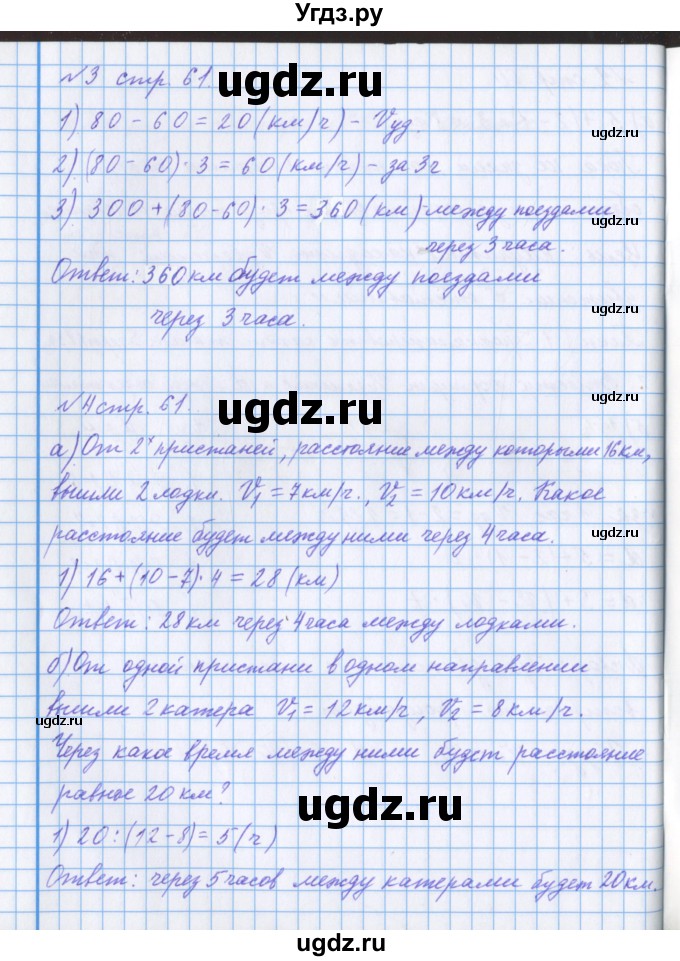 Угдз.ру
№3 стр. 61.
ugdz.ru
1) 80 - 60 = 20 (км/ч) - Vуд.
ugdz.ru
2) (80 - 60) · 3 = 60 (км/ч) - за 3ч
3) 300 + (80-60) · 3 = 360 (км) - между поездами
ugdz.ru
через 3 часа.
Ответ: 360 км будет между поездами
ugdz.ru
через 3 часа.
№4 стр. 61.
ugdz.ru
а) От 2х пристаней, расстояние между которыми 16 км,
ugdz.ru
вышли 2 лодки. V1 = 7 км/ч., V2 = 10 км/ч. Какое
расстояние будет между ними через 4 часа.
ugdz.ru
1) 16 + (10 - 7) · 4 = 28 (км)
Ответ: 28 км через 4 часа между лодками.
б) От одной пристани в одном направлении
вышли 2 катера V1 = 12 км/ч, V2 = 8 км/ч.
ugdz.ru
Через какое время между ними будет расстояние
равное 20 км?
ugdz.ru
1) 20 : (12 - 8) = 5 (ч)
ugdz.ru
Ответ: через 5 часов между катерами будет 20 км.
ugdz.ru